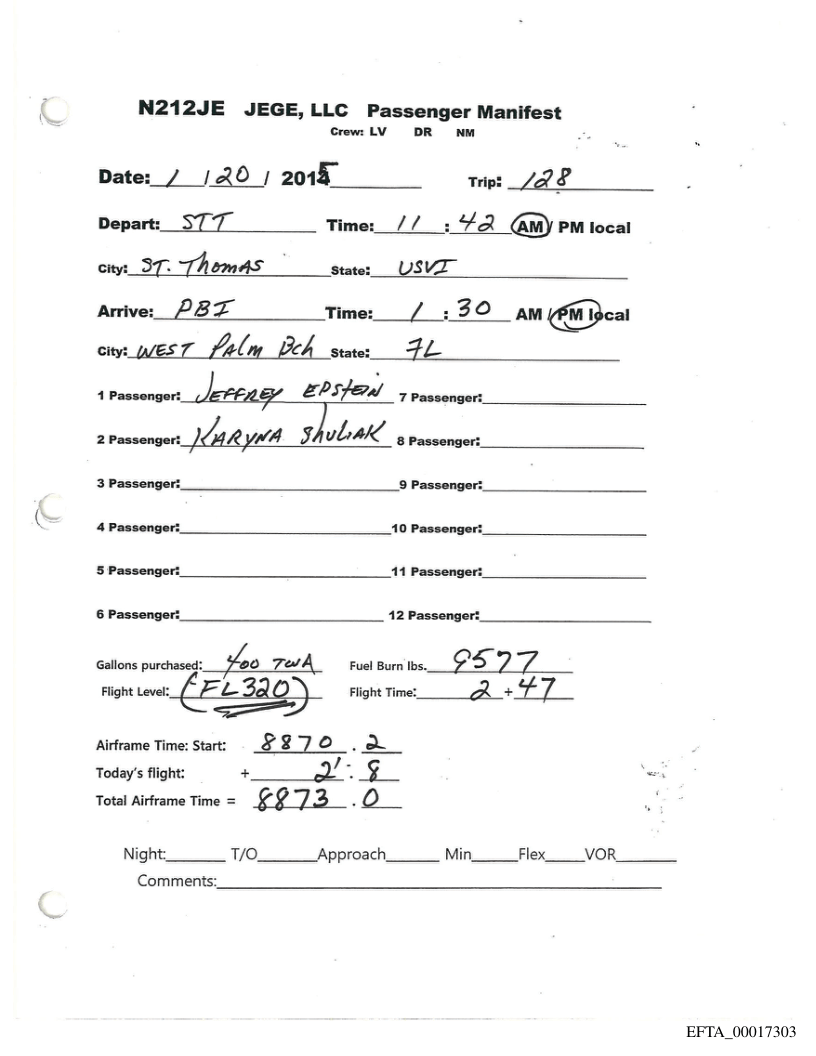 N212JE JEGE, LLC Passenger Manifest
Crew: LV DR NM
Date: 1 / 20 / 2015 Trip: 128
Depart: STT Time: 11 : 42 AM / PM local
City: ST. THOMAS State: USVI
Arrive: PBI Time: 1 : 30 AM / PM local
City: WEST PALM BCH State: FL
1 Passenger: JEFFREY EPSTEIN 7 Passenger:
2 Passenger: KARYNA SHULIAK 8 Passenger:
3 Passenger: 9 Passenger:
4 Passenger: 10 Passenger:
5 Passenger: 11 Passenger:
6 Passenger: 12 Passenger:
Gallons purchased: 400 TWA Fuel Burn lbs. 9577
Flight Level: (FL320) Flight Time: 2 + 47
Airframe Time: Start: 8870 . 2
Today's flight: + 2 . 8
Total Airframe Time = 8873 . 0
Night: T/O Approach Min Flex VOR
Comments:
EFTA_00017303